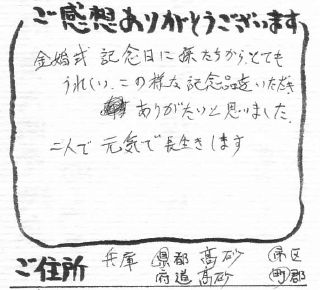 ご感想ありがとうございます
金婚式 記念日に孫たちから、とても
うれしい、この様な記念品をいただき
ありがたいと思いました。
二人で 元気で長生きします
ご住所 兵庫 県都府道 高砂 市区
高砂 町郡